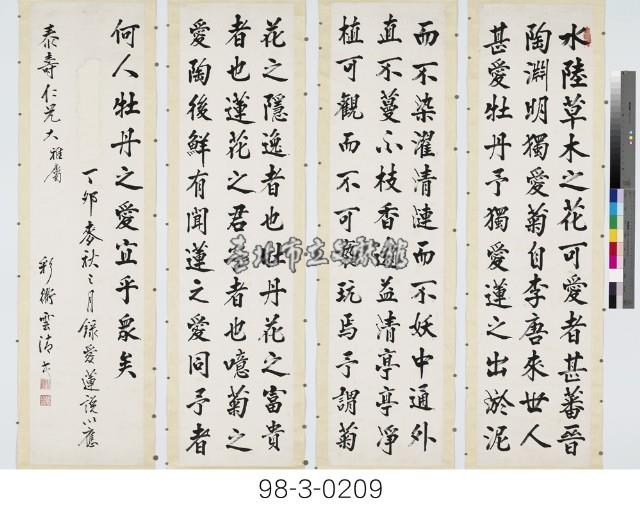 水陸草木之花可愛者甚蕃晉
陶淵明獨愛菊自李唐來世人
甚愛牡丹予獨愛蓮之出淤泥
而不染濯清漣而不妖中通外
直不蔓不枝香遠益清亭亭淨
植可觀而不可褻玩焉予謂菊
花之隱逸者也牡丹花之富貴
者也蓮花之君子者也噫菊之
愛陶後鮮有聞蓮之愛同予者
何人牡丹之愛宜乎衆矣
丁卯麥秋之月錄愛蓮說以應
泰壽仁兄大雅屬
彩衢雲清
臺北市立文獻館
98-3-0209